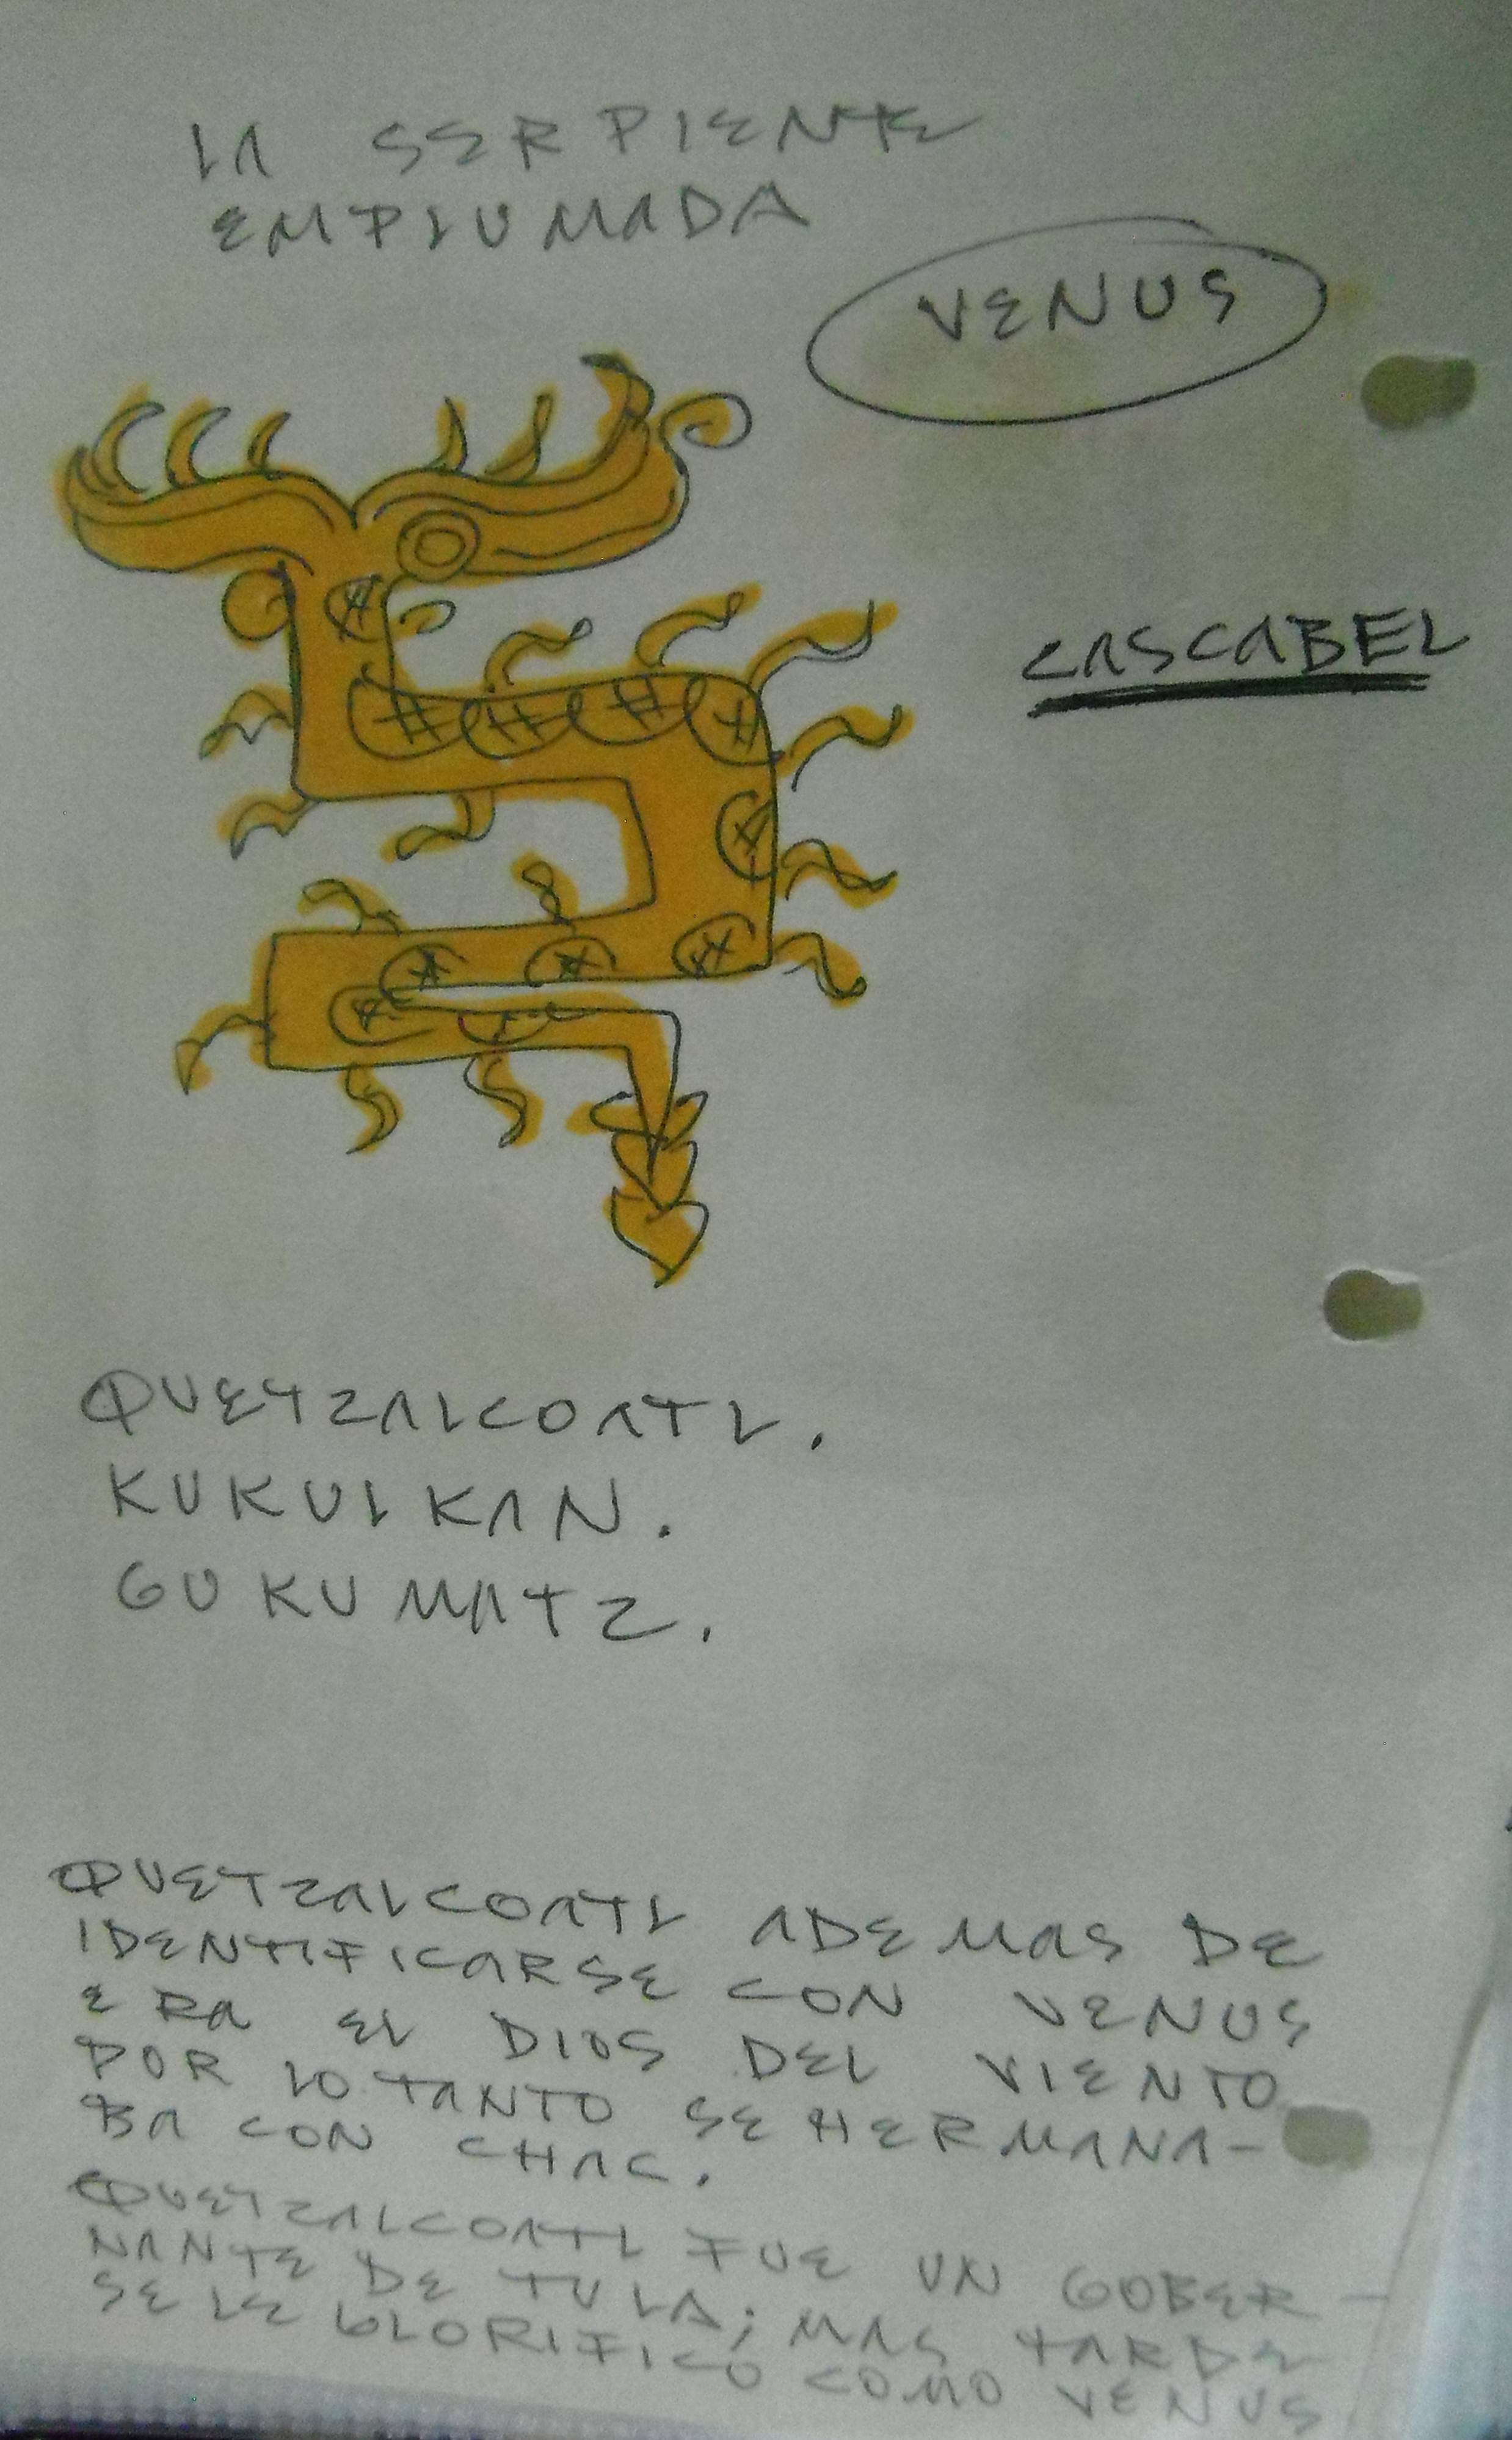 LA SERPIENTE
EMPLUMADA
VENUS
CASCABEL
QUETZALCOATL.
KUKULKAN.
GUKUMATZ.
QUETZALCOATL ADEMAS DE
IDENTIFICARSE CON VENUS
ERA EL DIOS DEL VIENTO
POR LO TANTO SE HERMANA-
BA CON CHAC.
QUETZALCOATL FUE UN GOBER-
NANTE DE TULA; MAS TARDE
SE LE GLORIFICO COMO VENUS